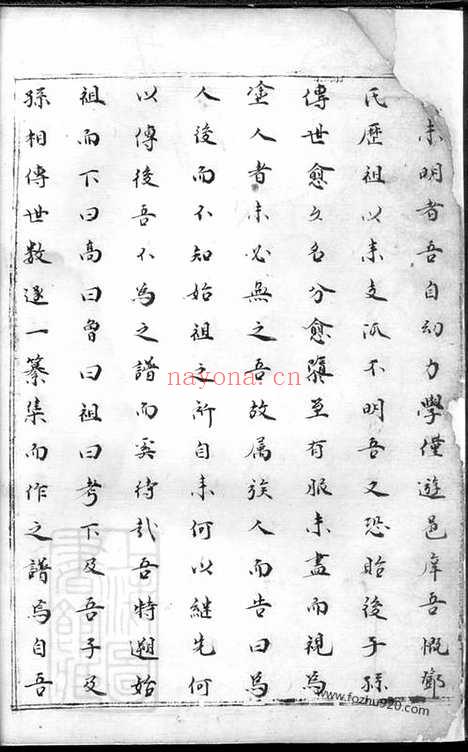 未明者吾自幼力學僅遊邑庠吾慨鄭
氏歷祖以來支派不明吾又恐貽後子孫
傳世愈久名分愈𨻶至有服未盡而視為
塗人者未必無之吾故属族人而告曰為
人後而不知始祖之所自来何以継先何
以傳後吾不為之譜而奚待哉吾特遡始
祖而下曰高曰曾曰祖曰考下及吾子及
孫相傳世数逐一纂集而作之譜焉自吾
nayona.cn
www.fozhu920.com